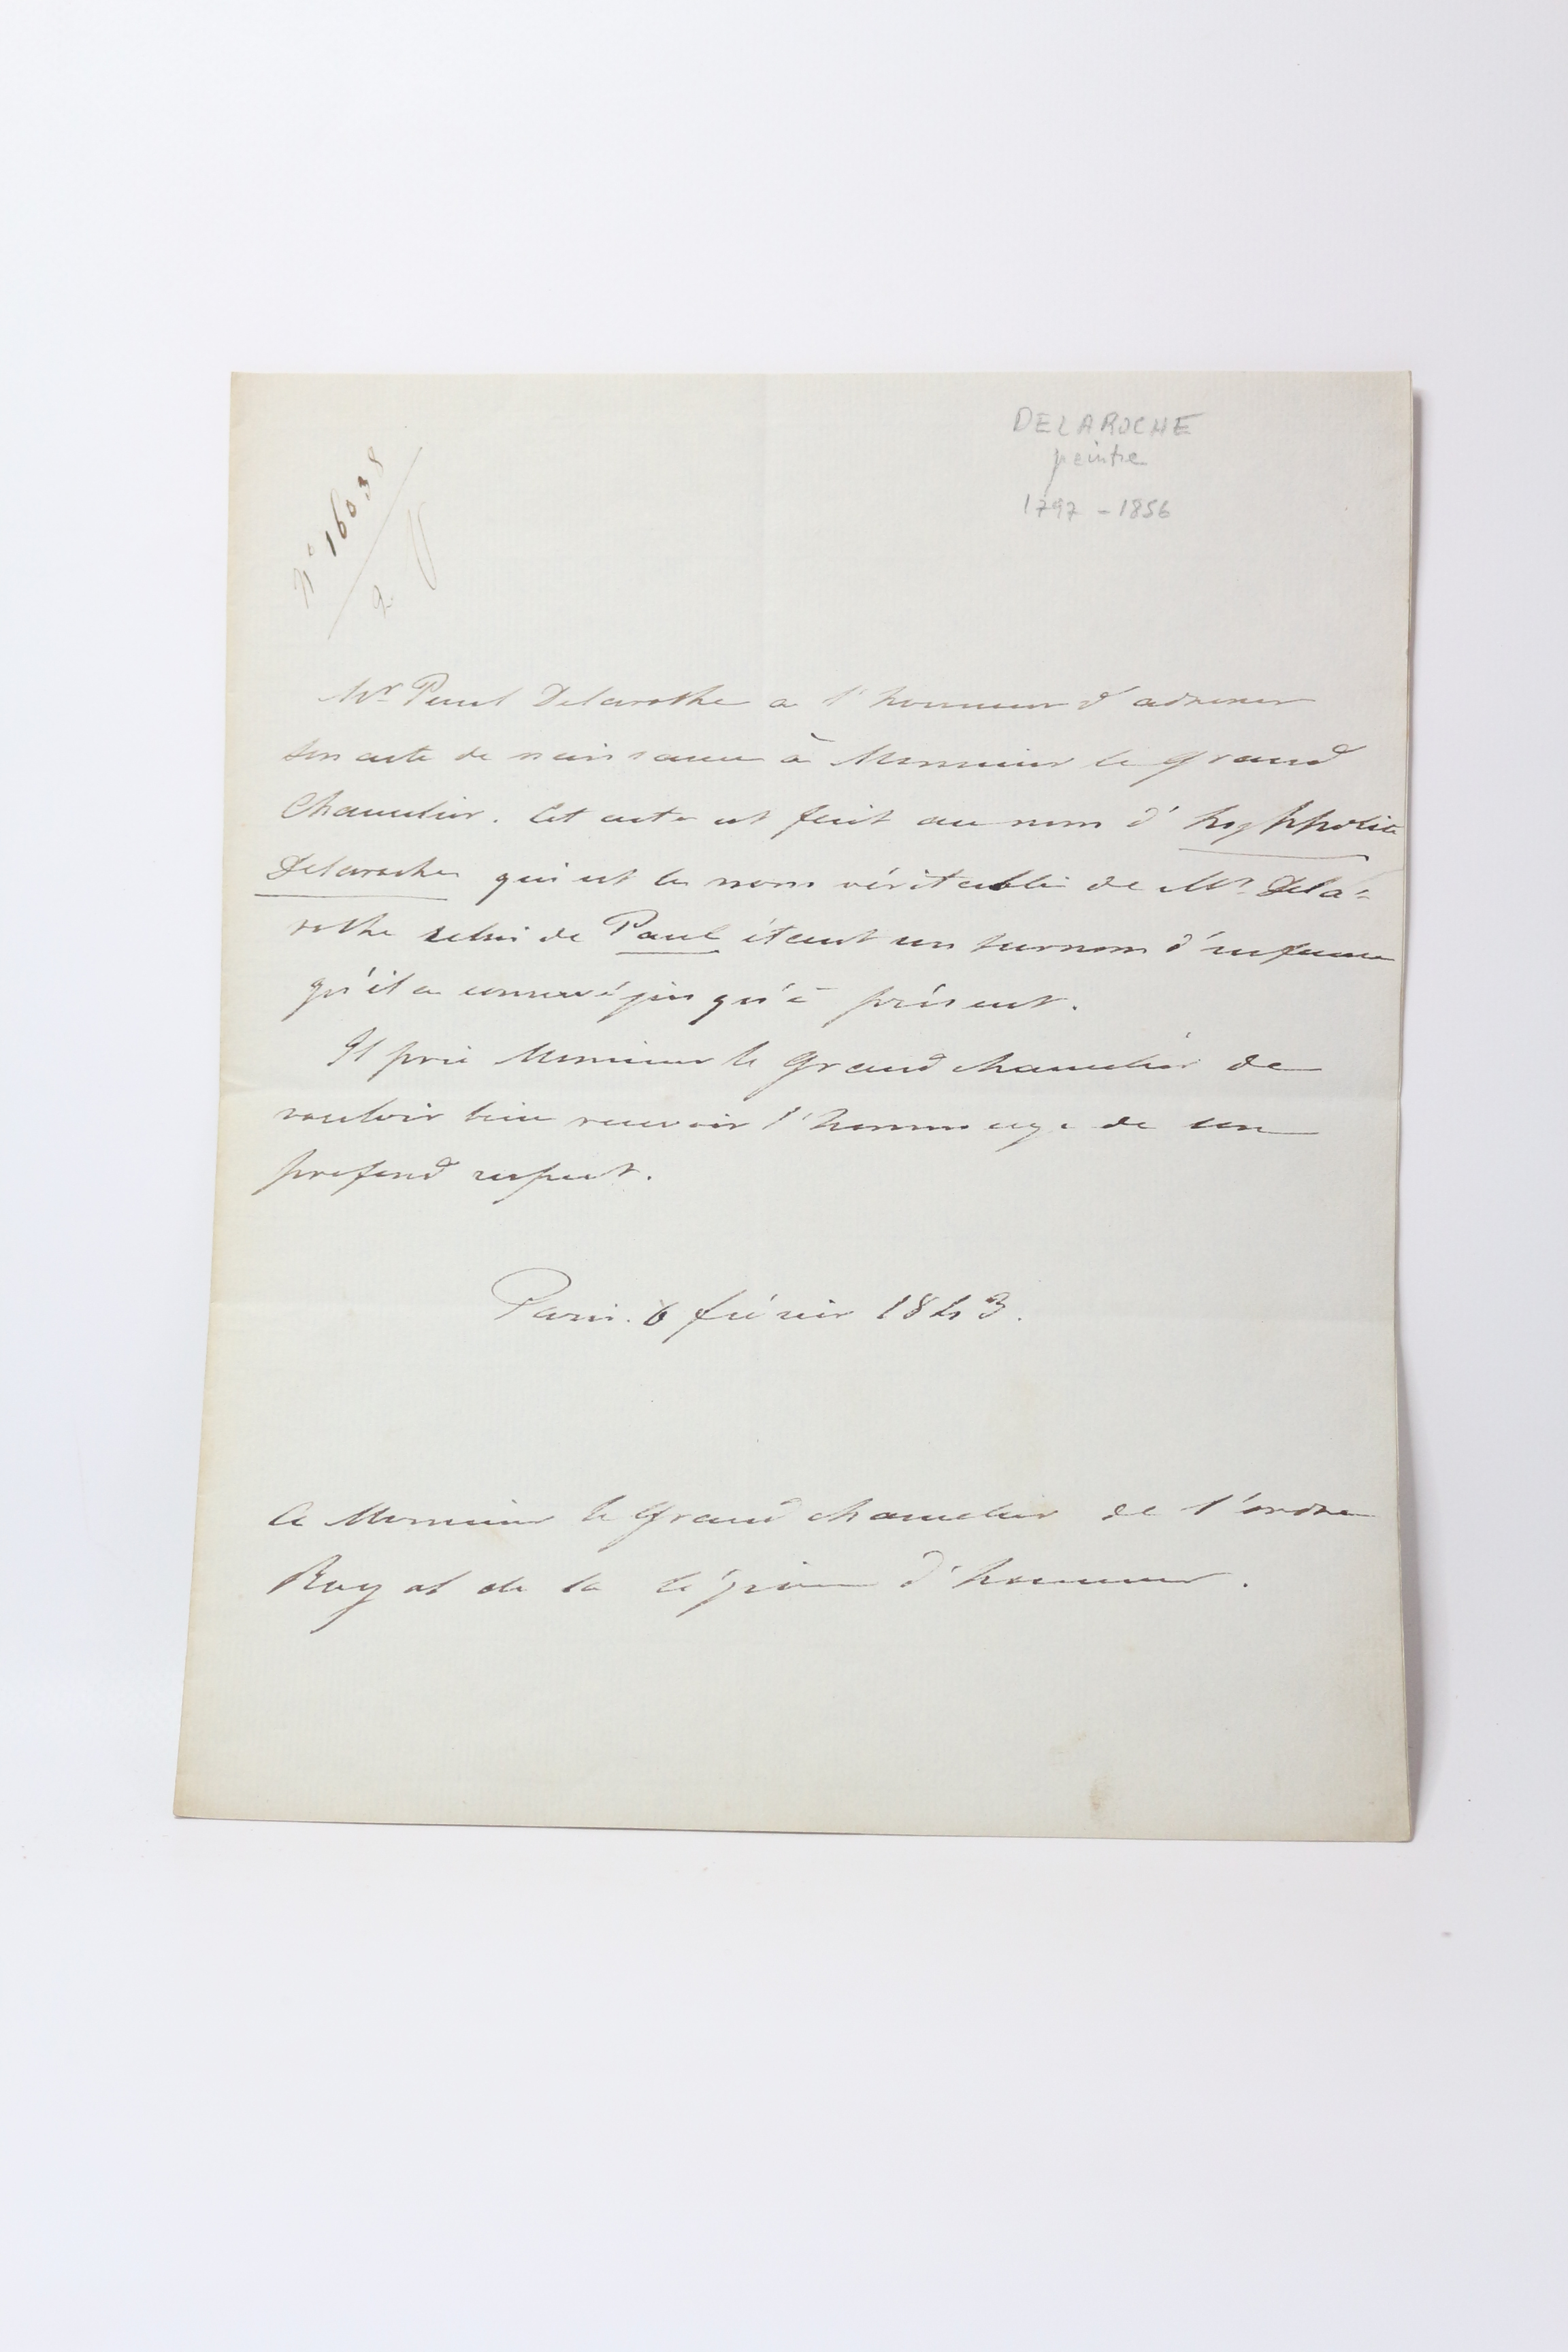 DELAROCHE
peintre
1797 - 1856
N° 16038
Mr Paul Delaroche a l'honneur d'adresser
son acte de naissance à Monsieur le grand
Chancelier. Cet acte est fait au nom d'hyppolite
Delaroche qui est le nom véritable de Mr Dela-
roche celui de Paul étant un surnom d'enfance
qu'il a conservé jusqu'à présent.
Il prie Monsieur le grand chancelier de
vouloir bien recevoir l'hommage de son
profond respect.
Paris. 6 février 1843.
A Monsieur le grand chancelier de l'ordre
Royal de la légion d'honneur.